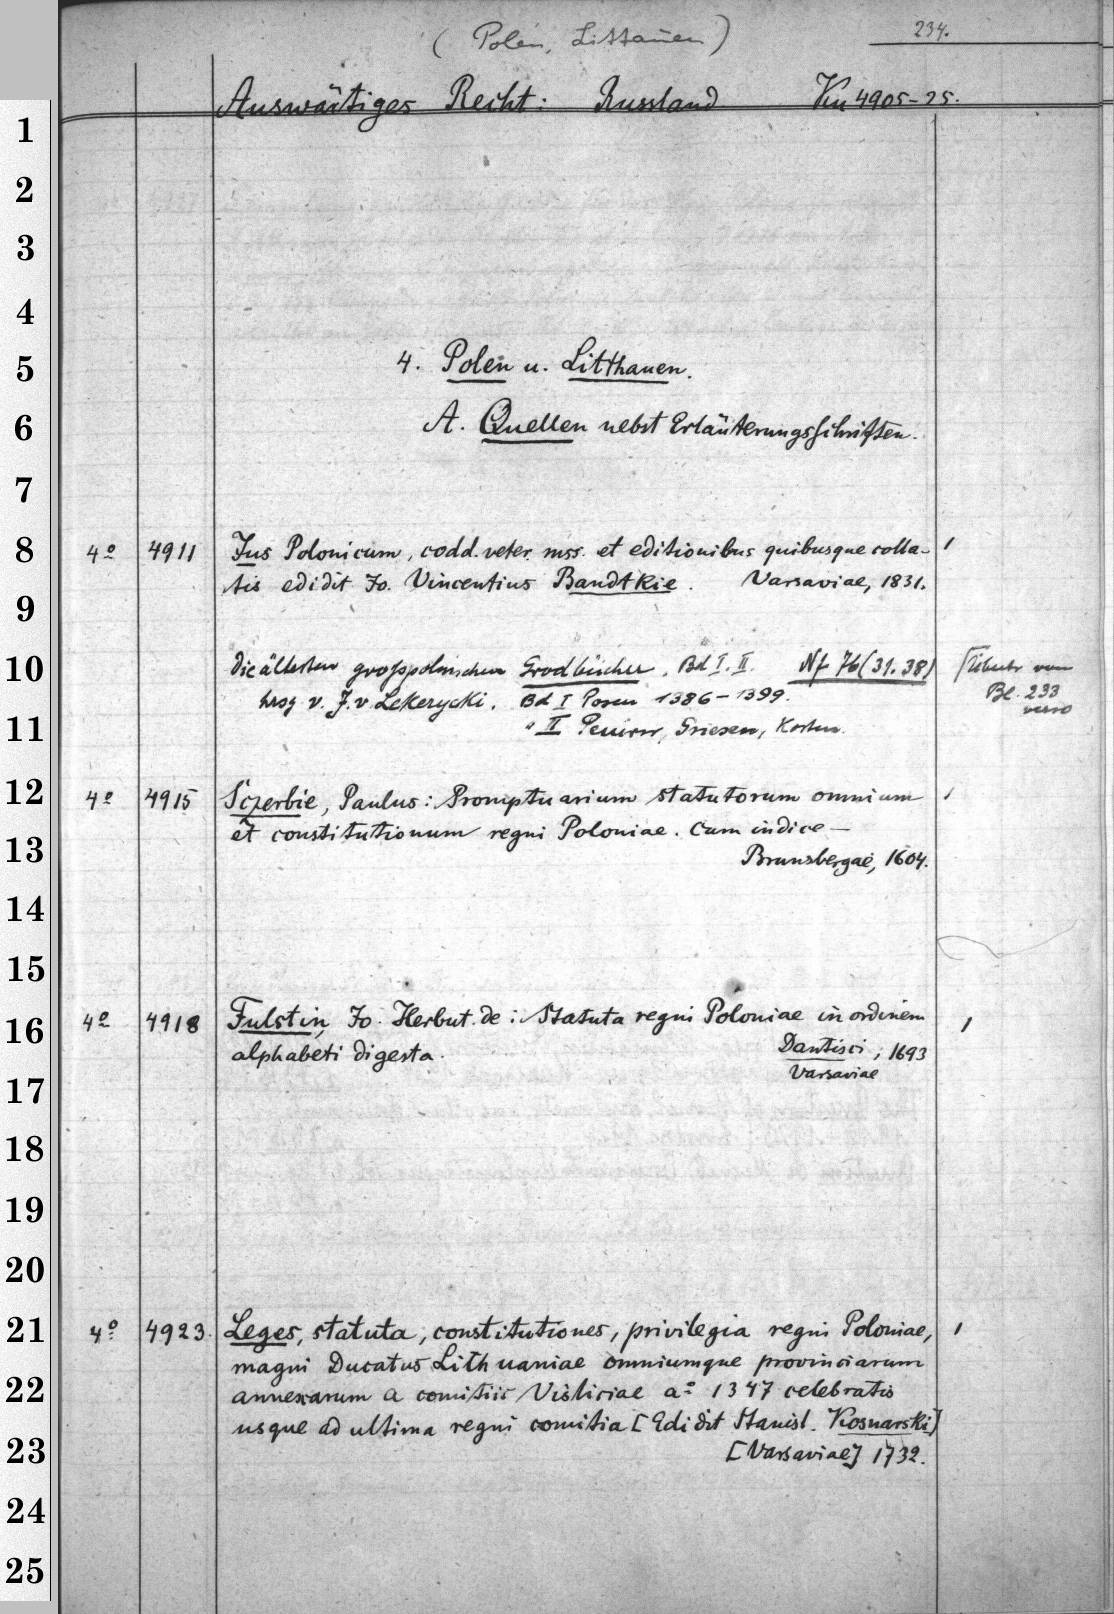 ( Polen, Littauen )
234.
Auswärtiges Recht: Russland Km 4905-25.
4. Polen u. Litthauen.
A. Quellen nebst Erläuterungsschriften.
4º 4911 Jus Polonicum, codd. veter. mss. et editionibus quibusque colla-
tis edidit Jo. Vincentius Bandtkie. Varsaviae, 1831.
die ältesten grosspolnischen Grodbücher. Bd I. II. Nf 76 (31. 38)
hrsg v. J. v. Lekczycki. Bd I Posen 1386-1399.
" II Peisern, Gnesen, Kosten.
Bl. 233
verso
4º 4915 Sczerbic, Paulus: Promptuarium statutorum omnium
et constitutionum regni Poloniae. Cum indice —
Brunsbergae, 1604.
4º 4918 Fulstin, Jo. Herbut. de: Statuta regni Poloniae in ordinem
alphabeti digesta. Dantisci, 1693
Varsaviae
4º 4923. Leges, statuta, constitutiones, privilegia regni Poloniae,
magni Ducatus Lithuaniae omniumque provinciarum
annexarum a comitiis Visliciae aº 1347 celebratis
usque ad ultima regni comitia [Edidit Stanisl. Kosnarski]
[Varsaviae] 1732.
1
2
3
4
5
6
7
8
9
10
11
12
13
14
15
16
17
18
19
20
21
22
23
24
25